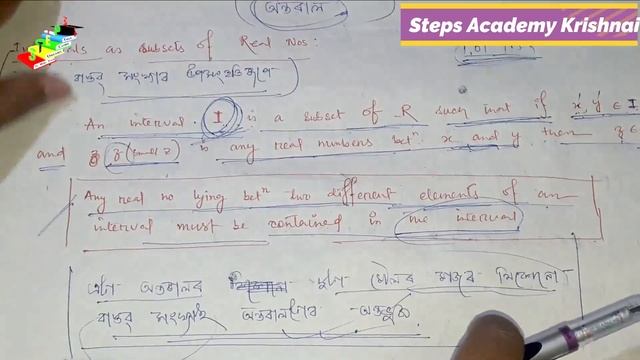 অন্তৰাল
Steps Academy Krishnai
as subsets of Real Nos:
বাস্তৱ সংখ্যাৰ উপসংহতিৰূপে
An interval I is a subset of R such that if x, y ∈ I
and z (small z) is any real numbers betⁿ x and y then z ∈
Any real no lying betⁿ two different elements of an
interval must be contained in the interval
এটা অন্তৰালৰ দুটা মৌলৰ মাজৰ যিকোনো
বাস্তৱ সংখ্যাই অন্তৰালটোৰ অন্তৰ্ভুক্ত